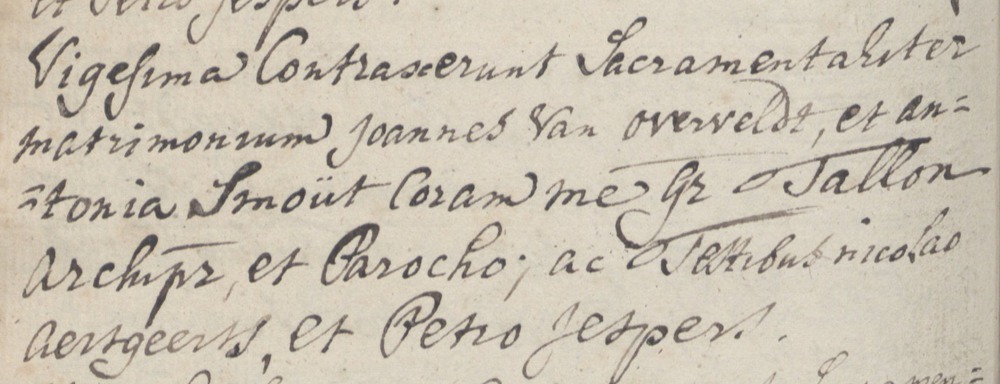 et Petro Jespers.
Vigesima Contraxerunt Sacramentaliter
matrimonium Joannes Van overveldt, et an=
=tonia Smoüt Coram me Gr Tallon
Archipr, et Parocho; ac Testibus nicolao
Aertgeerts, et Petro Jespers.